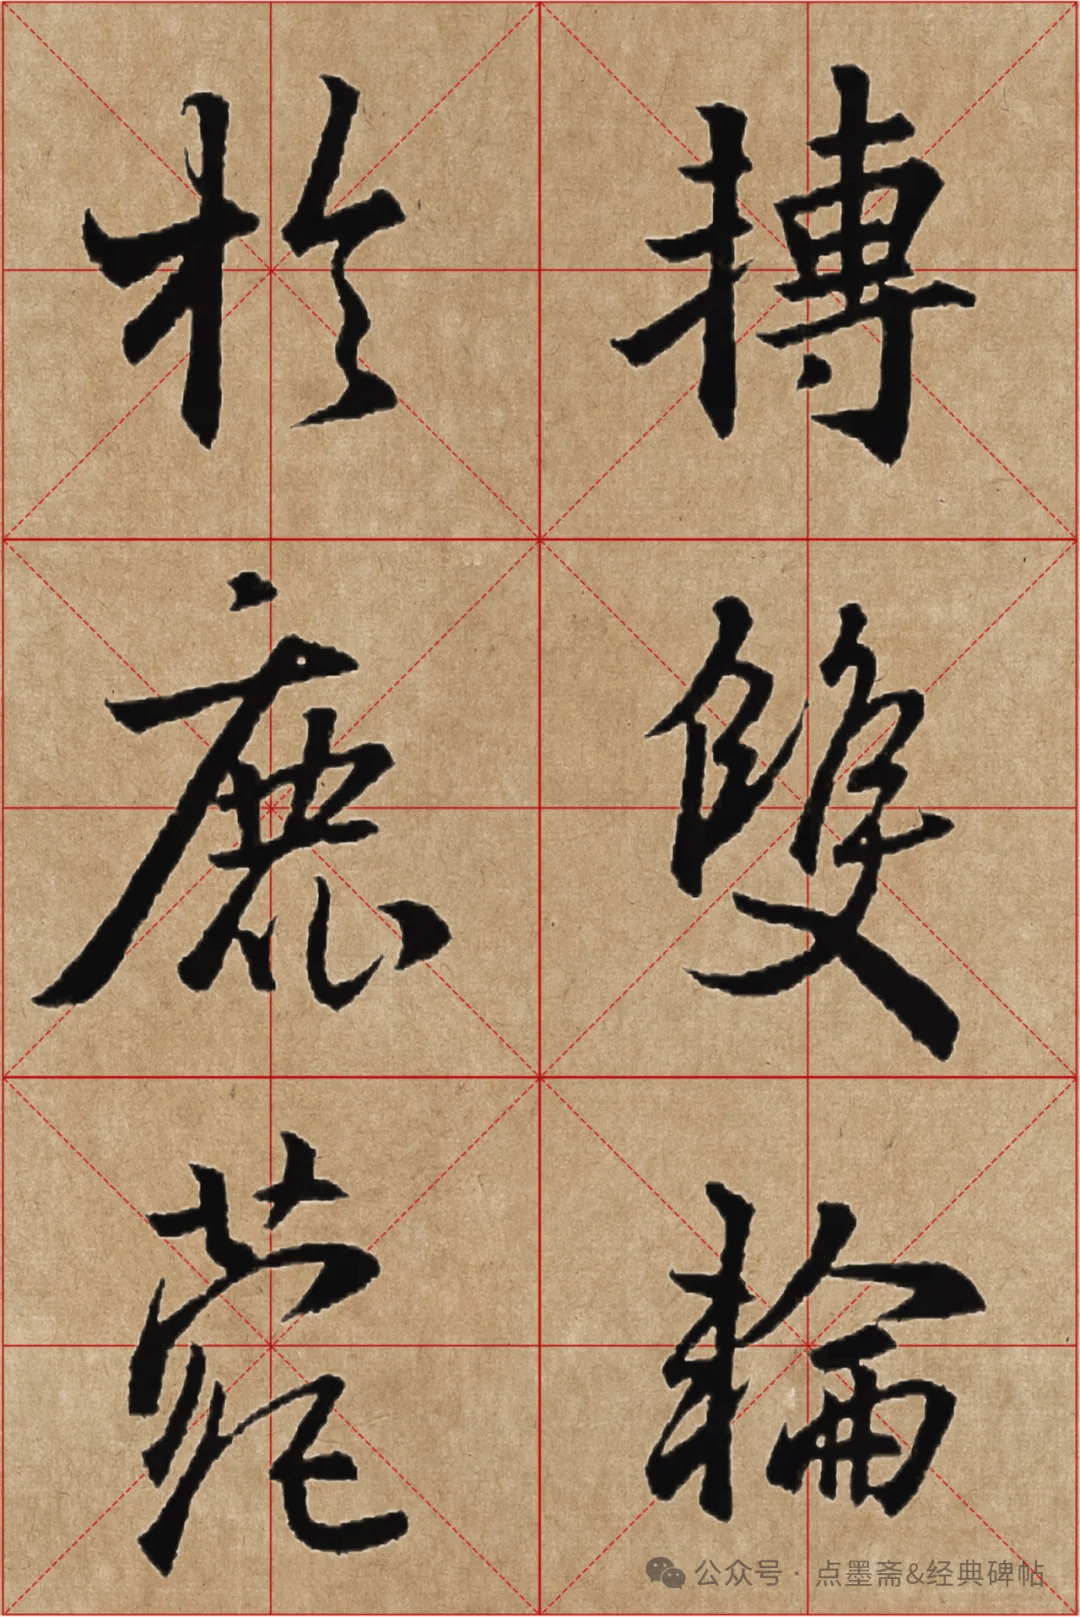 摶雙輪
於鹿菀
公众号 · 点墨斋&经典碑帖